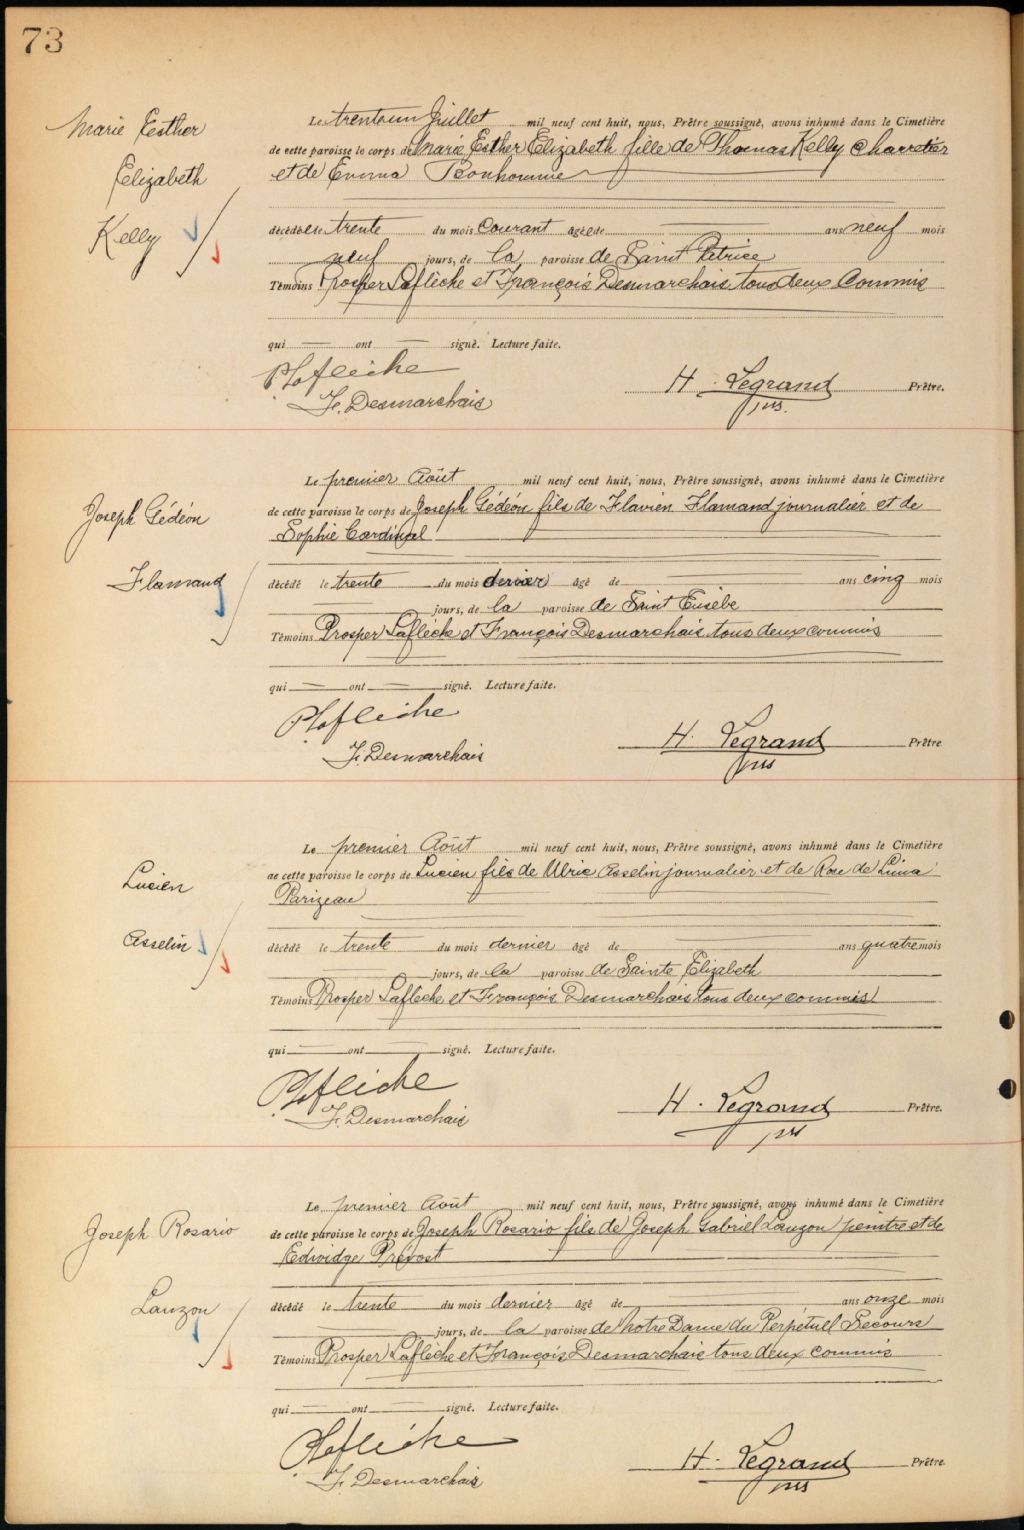 73
Marie Esther
Elizabeth
Kelly
Le trenteun Juillet mil neuf cent huit, nous, Prêtre soussigné, avons inhumé dans le Cimetière
de cette paroisse le corps de Marie Esther Elizabeth fille de Thomas Kelly Charretier
et de Emma Bonhomme
décédée le trente du mois courant âgée de ans neuf mois
neuf jours, de la paroisse de Saint
Témoins Prosper Laflèche et François Desmarchais tous deux Commis
qui ont signé. Lecture faite.
PLaflèche
F. Desmarchais
H. Legrand Prêtre.
ptre
Joseph Gédéon
Flamand
Le premier Août mil neuf cent huit, nous, Prêtre soussigné, avons inhumé dans le Cimetière
de cette paroisse le corps de Joseph Gédéon fils de Flavien Flamand journalier et de
Sophie Cardinal
décédé le trente du mois dernier âgé de ans cinq mois
jours, de la paroisse de Saint Eusèbe
Témoins Prosper Laflèche et François Desmarchais tous deux commis
qui ont signé. Lecture faite.
PLaflèche
F. Desmarchais
H. Legrand Prêtre
ptre
Lucien
Asselin
Le premier Août mil neuf cent huit, nous, Prêtre soussigné, avons inhumé dans le Cimetière
de cette paroisse le corps de Lucien fils de Ulric Asselin journalier et de Rose de Lima
Parizeau
décédé le trente du mois dernier âgé de ans quatre mois
jours, de la paroisse de Sainte Elizabeth
Témoins Prosper Laflèche et François Desmarchais tous deux commis
qui ont signé. Lecture faite.
PLaflèche
F. Desmarchais
H. Legrand Prêtre.
ptre
Joseph Rosario
Lauzon
Le premier Août mil neuf cent huit, nous, Prêtre soussigné, avons inhumé dans le Cimetière
de cette paroisse le corps de Joseph Rosario fils de Joseph Gabriel Lauzon peintre et de
Edwidge Prévost
décédé le trente du mois dernier âgé de ans onze mois
jours, de la paroisse de Notre Dame du Perpétuel Secours
Témoins Prosper Laflèche et François Desmarchais tous deux commis
qui ont signé. Lecture faite.
PLaflèche
F. Desmarchais
H. Legrand Prêtre
ptre